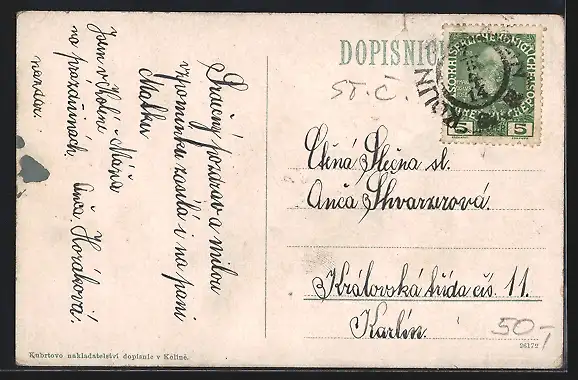 DOPISNICE
ST. Č.
KOLÍN
5 5
Srdečný pozdrav a milou
vzpomínku zasílá i na paní
Matku
Jsem v Kolíně
na prázdninách.
Máňa
Anča Horáková.
nazdar.
Ctěná Slečna sl.
Anča Schvarzrová.
Královská třída čís. 11.
Karlín.
50,-
26172
Kubrtovo nakladatelství dopisnic v Kolíně.